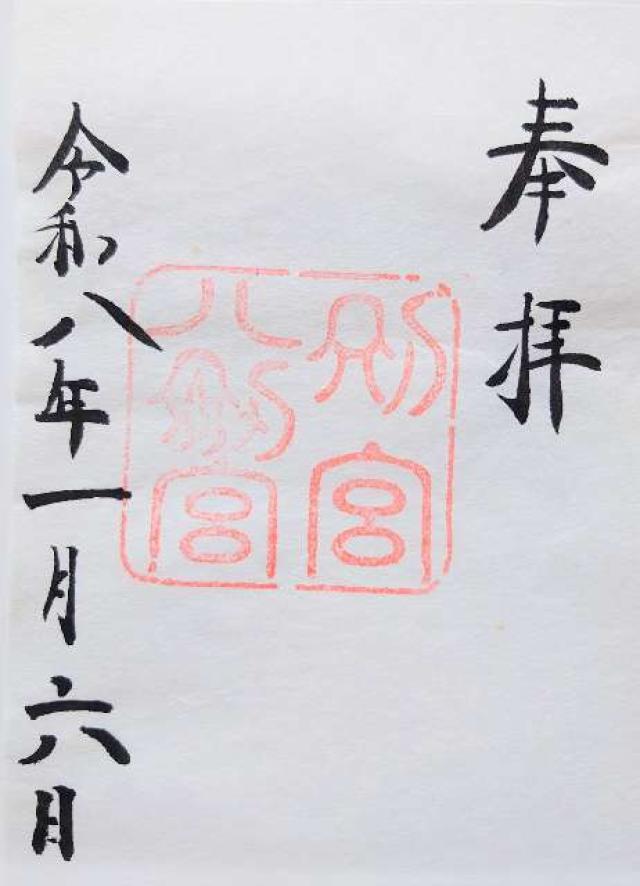 奉拝
別宮
八剣宮
令和八年一月六日